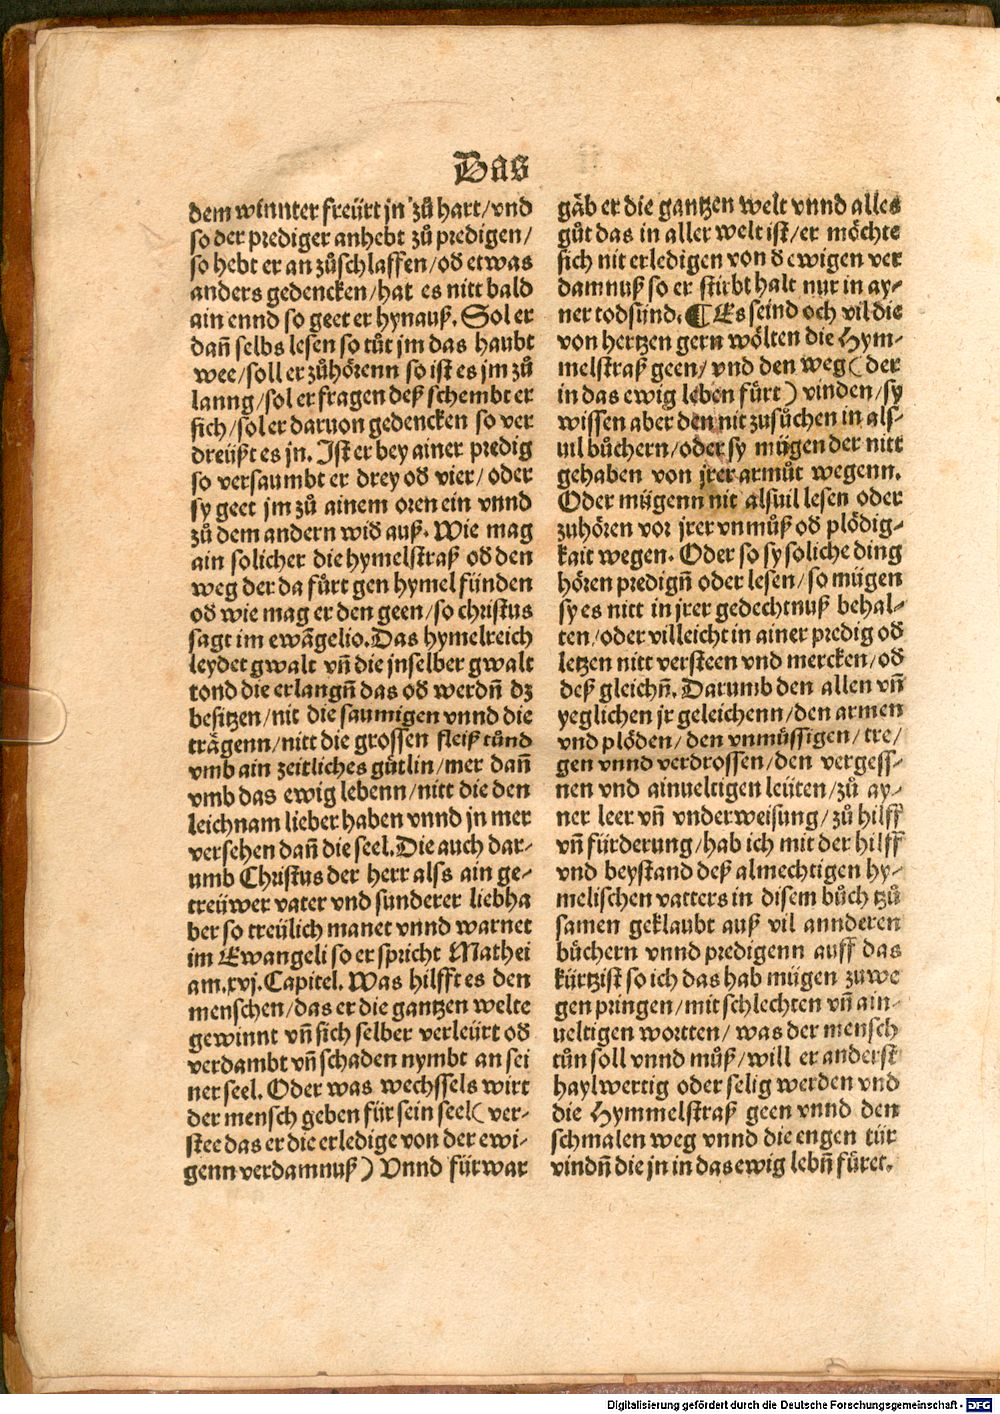 Das
dem winnter freürt jn zů hart/vnd
so der prediger anhebt zů predigen/
so hebt er an zůschlaffen/od etwas
anders gedencken/hat es nitt bald
ain ennd so geet er hynauß. Sol er
dañ selbs lesen so tůt jm das haubt
wee/soll er zůhörenn so ist es jm zů
lanng/sol er fragen deß schembt er
sich/sol er daruon gedencken so ver
dreüßt es jn. Ist er bey ainer predig
so versaumbt er drey od vier/oder
sy geet jm zů ainem oren ein vnnd
zů dem andern wid auß. Wie mag
ain solicher die hymelstraß od den
weg der da fůrt gen hymel fünden
od wie mag er den geen/so christus
sagt im ewãgelio. Das hymelreich
leydet gwalt vñ die jnselber gwalt
tond die erlangñ das od werdñ dz
besitzen/nit die saumigen vnnd die
trägenn/nitt die grossen fleiß tůnd
vmb ain zeitliches gůtlin/mer dañ
vmb das ewig lebenn/nitt die den
leichnam lieber haben vnnd jn mer
versehen dañ die seel. Die auch dar-
umb Christus der herr alss ain ge-
treüwer vater vnd sunderer liebha
ber so treülich manet vnnd warnet
im Ewangeli so er spricht Mathei
am.xvj.Capitel. Was hilfft es den
menschen/das er die gantzen welte
gewinnt vñ sich selber verleürt od
verdambt vñ schaden nymbt an sei
ner seel. Oder was wechssels wirt
der mensch geben für sein seel(ver-
stee das er die erledige von der ewi-
genn verdamnuß) Vnnd fürwar
gäb er die gantzen welt vnnd alles
gůt das in aller welt ist/er möchte
sich nit erledigen von d ewigen ver
damnuß so er stirbt halt nur in ay-
ner todsünd. ¶ Es seind och vil die
von hertzen gern wölten die Hym-
melstraß geen/vnd den weg(der
in das ewig leben fůrt) vinden/sy
wissen aber den nit zusůchen in als-
uil bůchern/oder sy mügen der nitt
gehaben von jrer armůt wegenn.
Oder mügenn nit alsuil lesen oder
zuhören vor jrer vnmůß od plödig-
kait wegen. Oder so sy soliche ding
hören predigñ oder lesen/so mügen
sy es nitt in jrer gedechtnuß behal-
ten/oder villeicht in ainer predig od
letzen nitt versteen vnd mercken/od
deß gleichñ. Darumb den allen vñ
yeglichen jr geleichenn/den armen
vnd plöden/den vnmůssigen/tre/
gen vnnd verdrossen/den vergess-
nen vnd ainueltigen leüten/zů ay-
ner leer vñ vnderweisung/zů hilff
vñ fürderung/hab ich mit der hilff
vnd beystand deß almechtigen hy-
melischen vatters in disem bůch tzů
samen geklaubt auß vil annderen
bůchern vnnd predigenn auff das
kürtzist so ich das hab mügen zuwe
gen pringen/mit schlechten vñ ain-
ueltigen wortten/was der mensch
tůn soll vnnd můß/will er anderst
haylwertig oder selig werden vnd
die Hymmelstraß geen vnnd den
schmalen weg vnnd die engen tür
vindñ die jn in das ewig lebñ fůret.
Digitalisierung gefördert durch die Deutsche Forschungsgemeinschaft - DFG